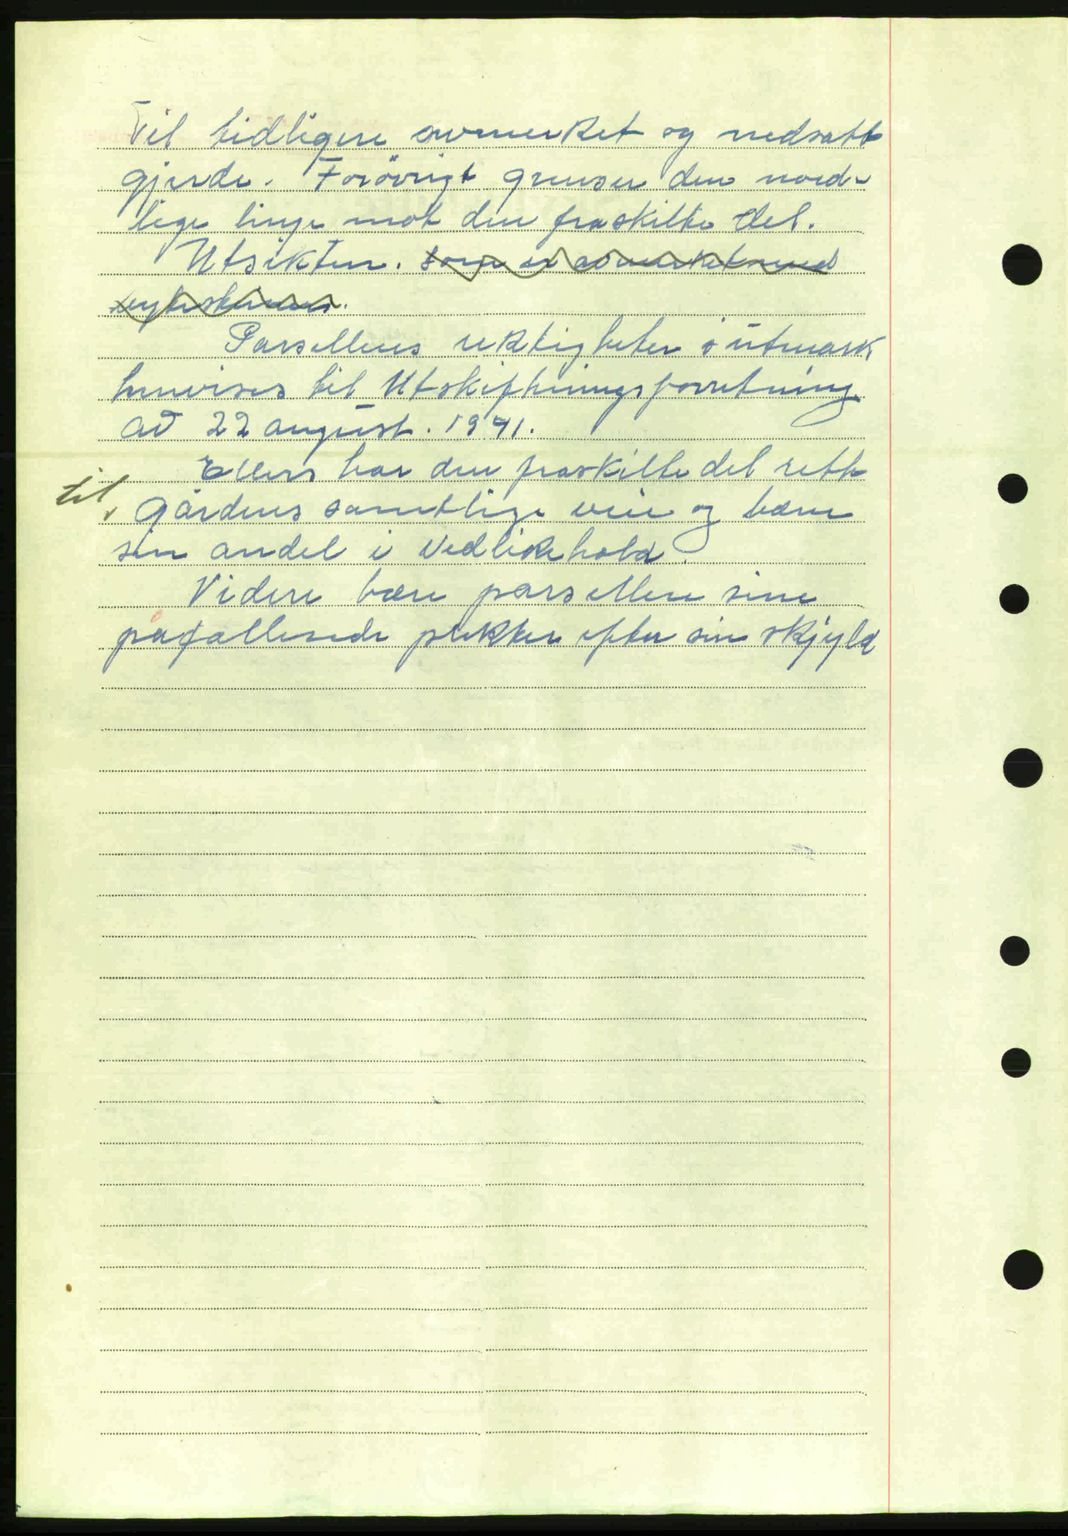 Til tidligere avmerket og nedsatt
gjerde. Forøvrigt grenser den nord-
lige linje mot den fraskilte del.
Utsikten. som er avmerket med
Parsellens rektigheter i utmark
henvises til Utskiftningsforretning
av 22 august. 1941.
Ellers har den fraskilte del rett
til gårdens samtlige veie og bære
sin andel i vedlikehold.
Videre bære parsellen sine
påfallende plikter efter sin skjyld